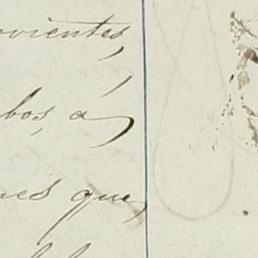 ovientes,
bos, a
nes que,